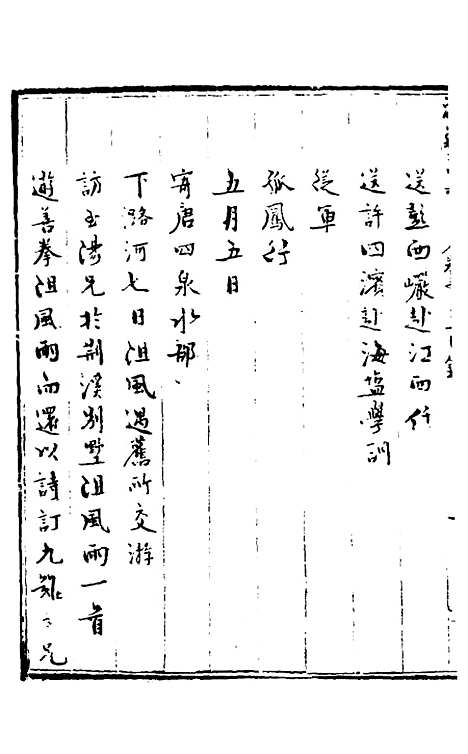 送彭西巘赴江西任
送許四濱赴海塩學訓
從軍
孤鳳行
五月五日
寄唐四泉水部
下潞河七日沮風遇舊所交游
訪玉陽兄於荆溪别墅沮風雨一首
遊善拳沮風雨而還以詩訂九難之兄